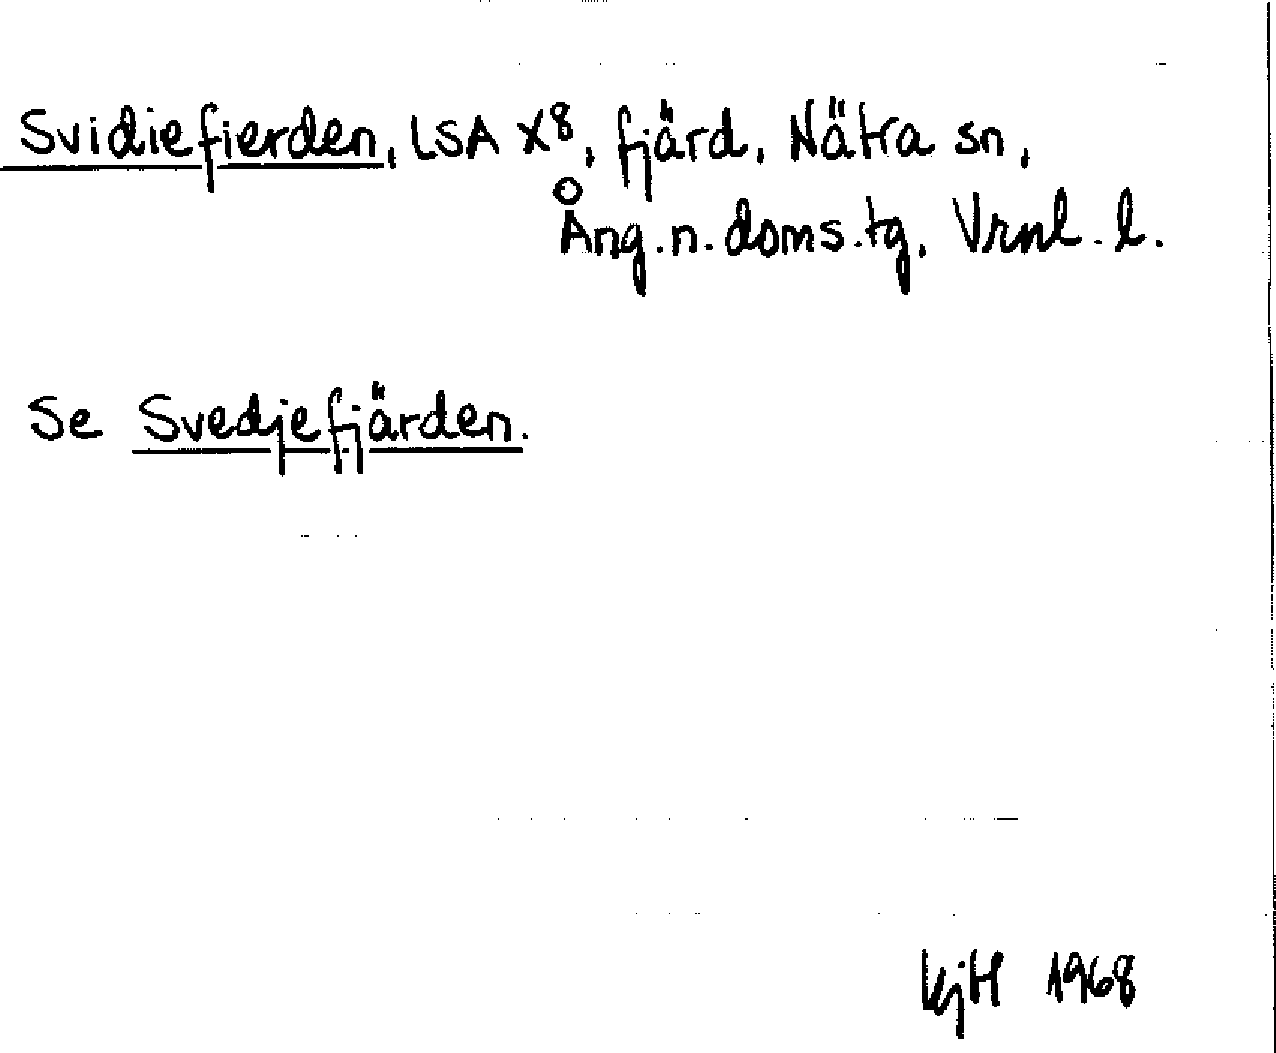 Svidiefierden, LSA X8, fjärd, Nätra sn,
Ång.n.doms.tg, Vrnl.l.
Se Svedjefjärden.
KjH 1968